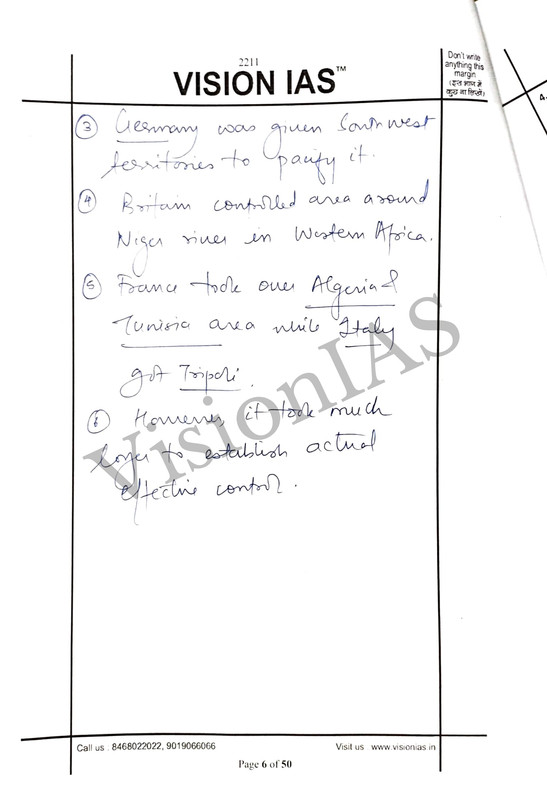 2211
VISION IAS™
Don't write
anything this
margin
(इस भाग में
कुछ ना लिखें)
③ Germany was given South west
territories to pacify it.
④ Britain controlled area around
Niger river in Western Africa.
⑤ France took over Algeria &
Tunisia area while Italy
got Tripoli.
⑥ However, it took much
longer to establish actual
effective control.
VisionIAS
Call us : 8468022022, 9019066066
Visit us : www.visionias.in
Page 6 of 50